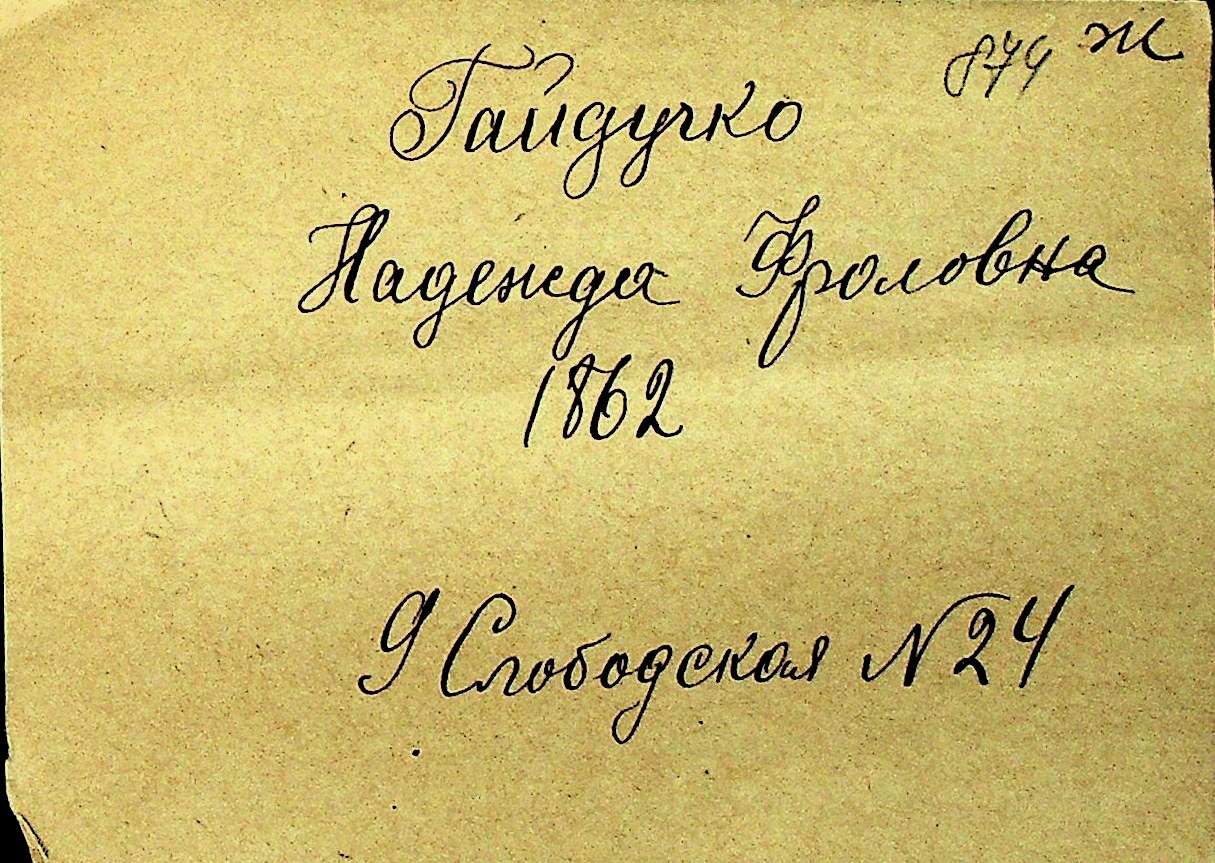 874 Ж
Гайдучко
Надежда Фроловна
1862
9 Слободская №24